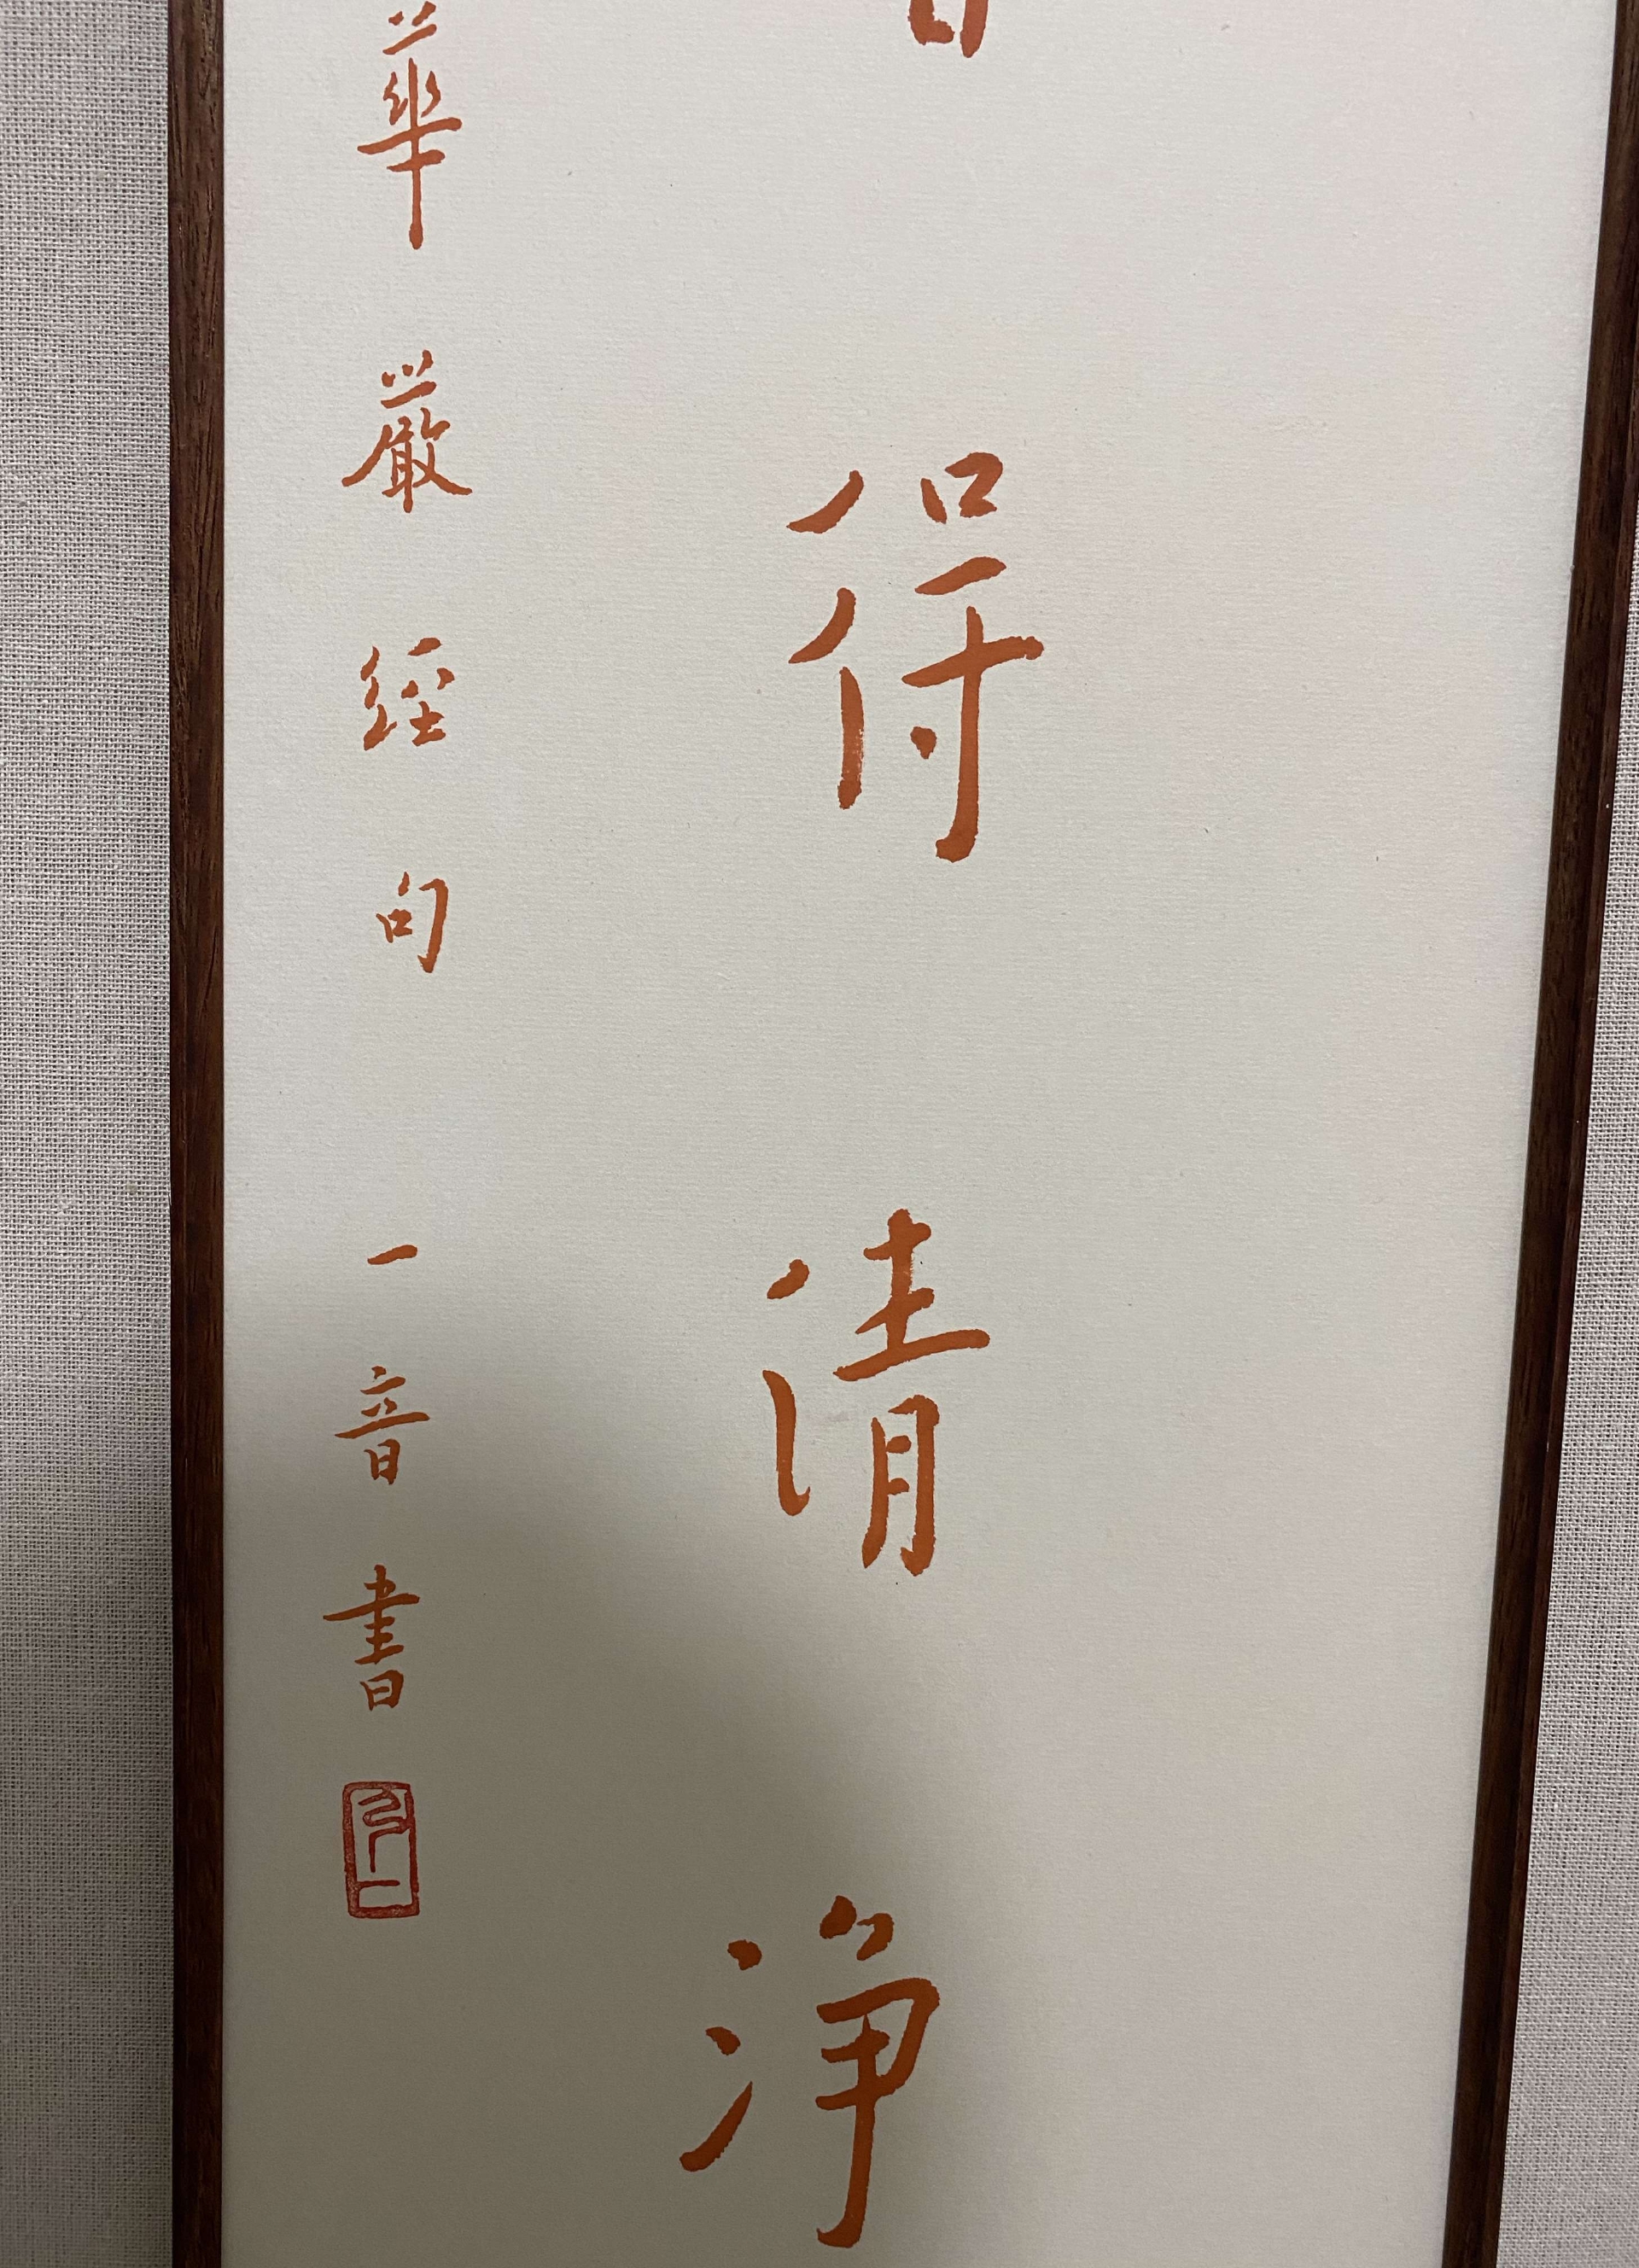 得清淨
華嚴經句 一音書